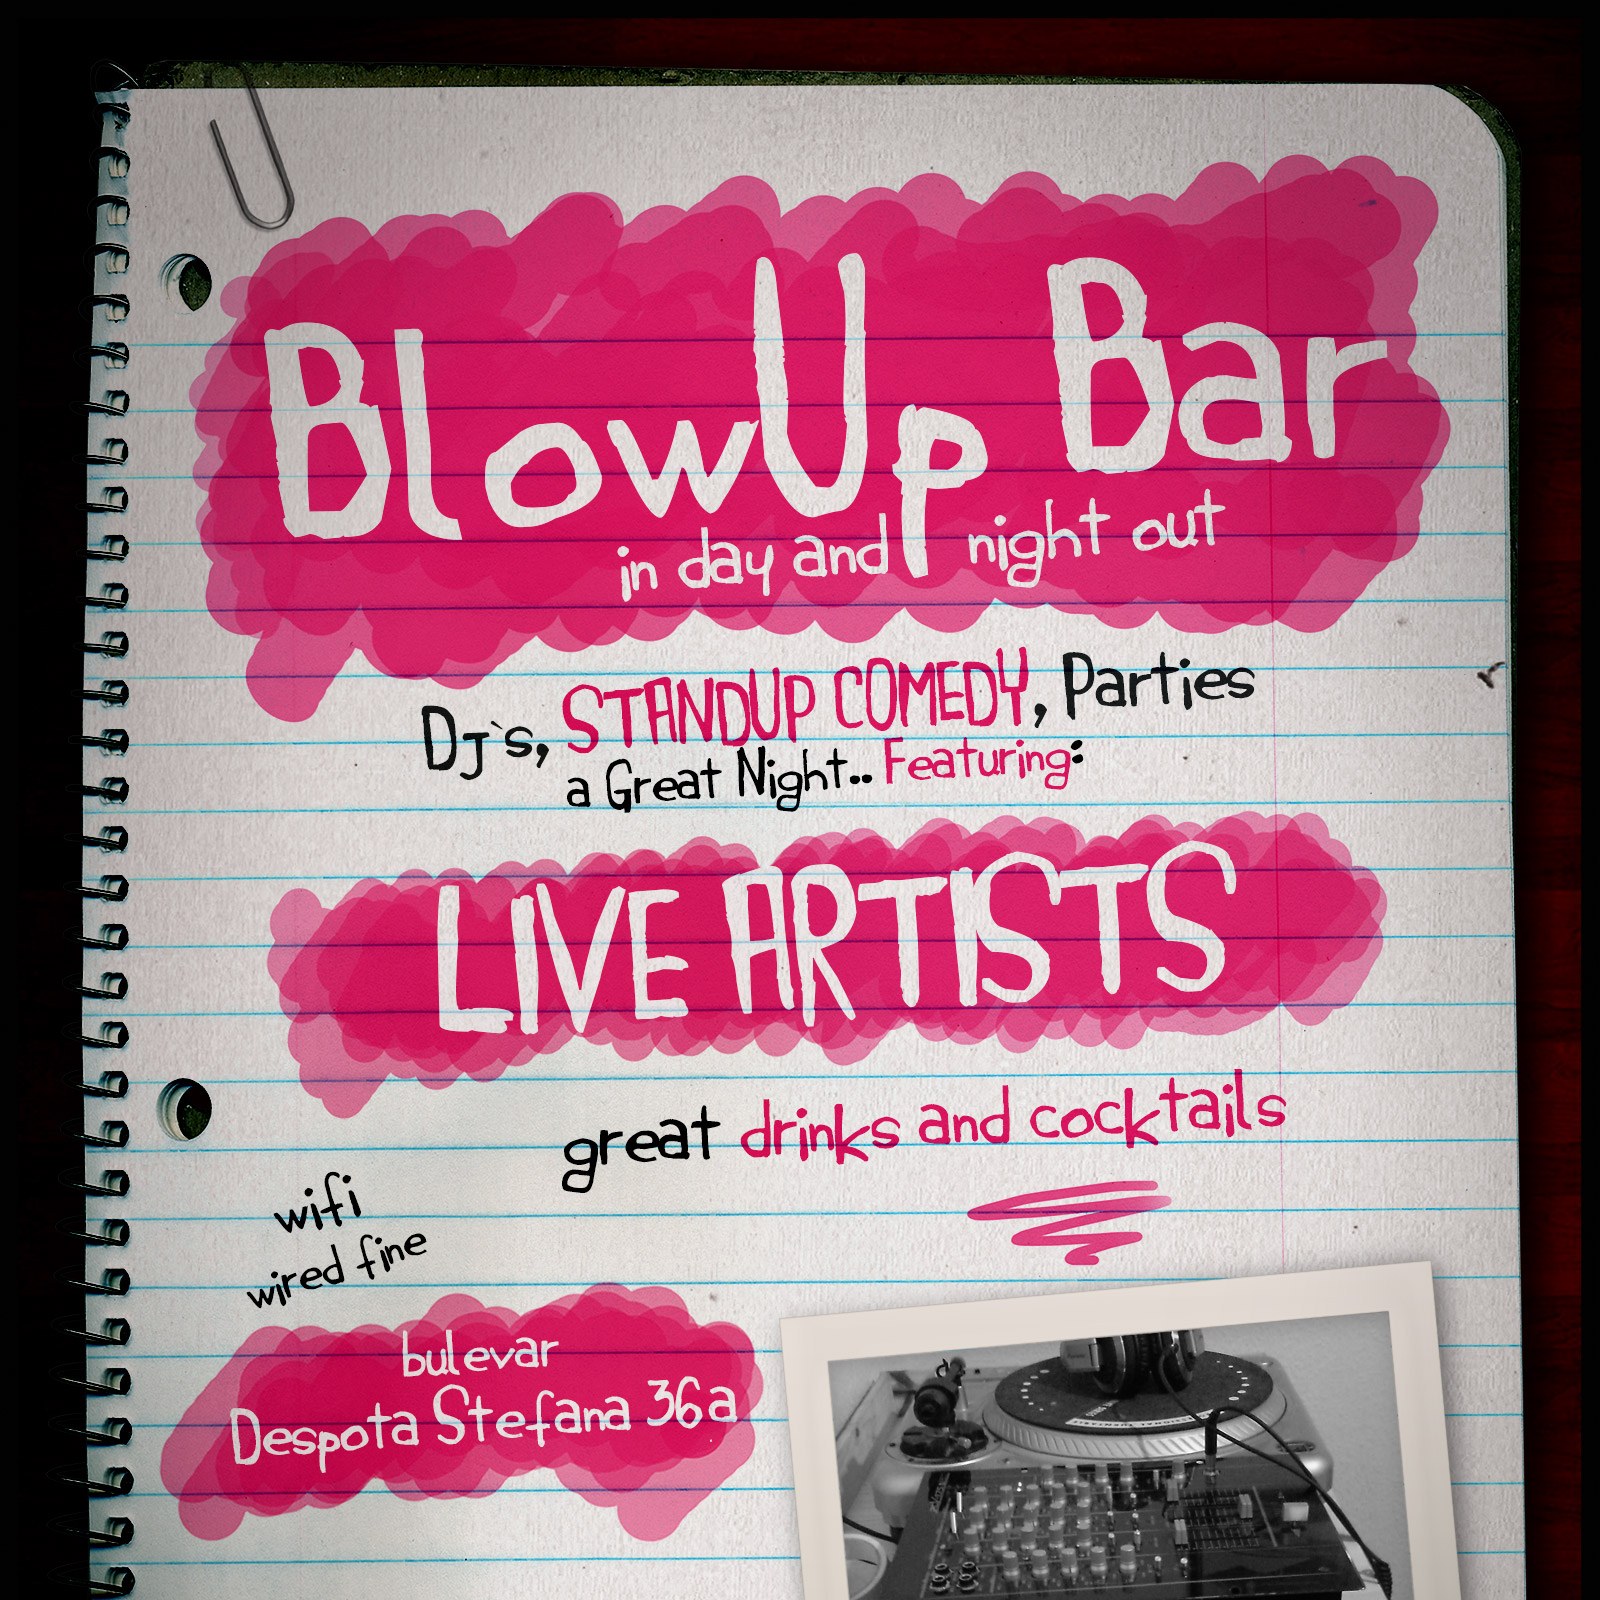 BlowUp Bar
in day and night out
Dj`s, STANDUP COMEDY, Parties
a Great Night.. Featuring:
LIVE ARTISTS
great drinks and cocktails
wifi
wired fine
bulevar
Despota Stefana 36a